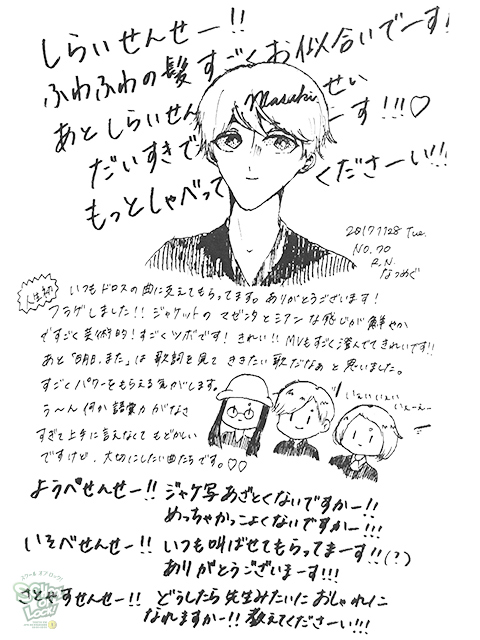 しらいせんせー!!
ふわふわの髪すごくお似合いでーす!
あとしらいせんせい
だいすきでーす!!!♡
もっとしゃべってくださーい!!!
Masaki
20171128 Tue.
NO.70
R.N.
なつめぐ
人生初
いつもドロスの曲に支えてもらってます。ありがとうございます!
フラゲしました!!ジャケットのマゼンタとシアンな感じが鮮やか
ですごく美術的!すごくツボです!きれい!!MVもすごく澄んでてきれいです!!
あと「明日、また」は歌詞を見てききたい歌だなぁと思いました。
すごくパワーをもらえる気がします。
う〜ん何か語彙力がなさ
すぎて上手に言えなくてもどかしい
ですけど、大切にしたい曲たちです。♡♡
いぇいいぇい
いぇーえー
ようぺせんせー!!ジャケ写あざとくないですかー!!
めっちゃかっこよくないですかー!!!
いそべせんせー!!いつも叫ばせてもらってまーす!!(?)
ありがとうございまーす!!!
さとやすせんせー!!どうしたら先生みたいにおしゃれに
なれますかー!!教えてくださーい!!!
スクール オブ ロック!
SCHOOL OF LOCK!